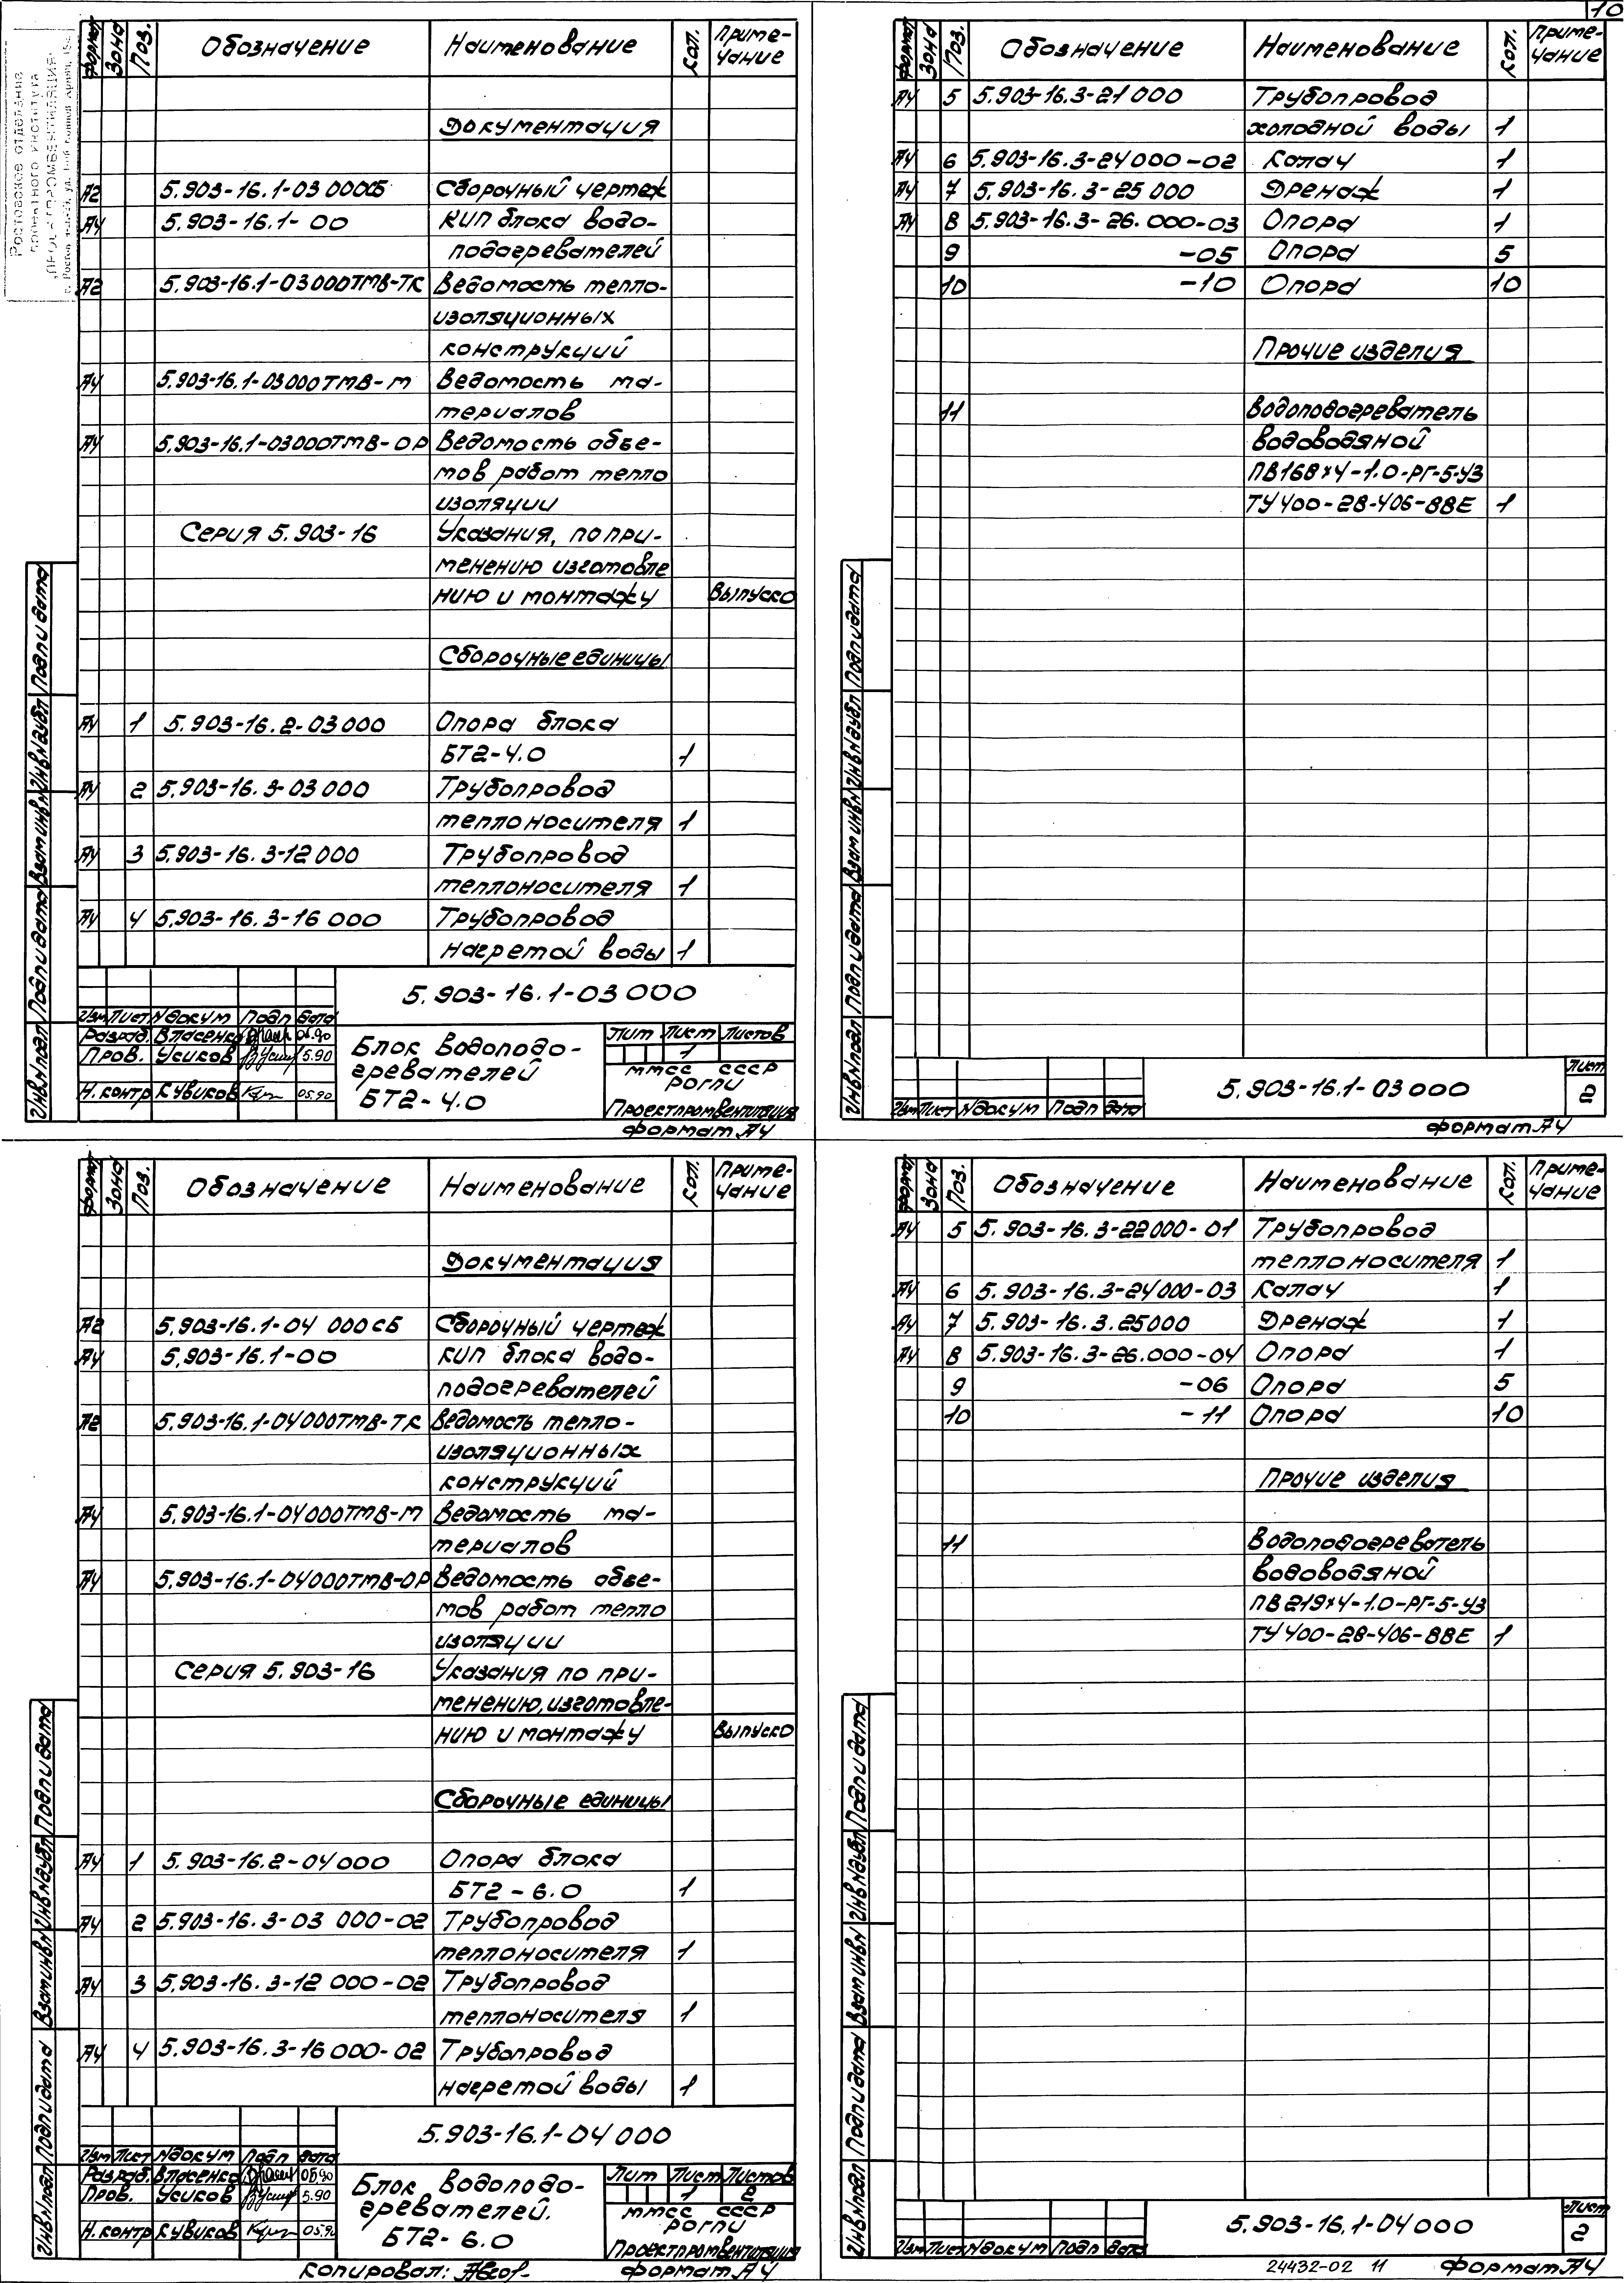 10
Формат Зона Поз. Обозначение Наименование Кол. Приме-чание
Документация
А2 5.903-16.1-03 000СБ Сборочный чертеж
А4 5.903-16.1-00 КИП блока водо-
подогревателей
А2 5.903-16.1-03000ТМВ-ТК Ведомость тепло-
изоляционных
конструкций
А4 5.903-16.1-03000ТМВ-М Ведомость ма-
териалов
А4 5.903-16.1-03000ТМВ-ОР Ведомость объе-
мов работ тепло
изоляции
Серия 5.903-16 Указания, по при-
менению изготовле
нию и монтажу Выпуск0
Сборочные единицы
А4 1 5.903-16.2-03000 Опора блока
БТ2-4.0 1
А4 2 5.903-16.3-03000 Трубопровод
теплоносителя 1
А4 3 5.903-16.3-12000 Трубопровод
теплоносителя 1
А4 4 5.903-16.3-16000 Трубопровод
нагретой воды 1
5.903-16.1-03000
Изм Лист №докум Подп Дата
Разраб. Власенко 05.90
Пров. Усиков 5.90
Н.контр Кувиков 05.90
Блок водоподо-
гревателей
БТ2-4.0
Лит Лист Листов
1
ММСС СССР
РОГПИ
Проектпромвентиляция
Формат А4
Инв№подл Подп и дата Взам инв№ Инв№дубл Подп и дата
Ростовское отделение
проектного института
„ПРОЕКТПРОМВЕНТИЛЯЦИЯ"
Формат Зона Поз. Обозначение Наименование Кол. Приме-чание
А4 5 5.903-16.3-21000 Трубопровод
холодной воды 1
А4 6 5.903-16.3-24000-02 Калач 1
А4 7 5.903-16.3-25000 Дренаж 1
А4 8 5.903-16.3-26.000-03 Опора 1
9 -05 Опора 5
10 -10 Опора 10
Прочие изделия
11 Водоподогреватель
водоводяной
ПВ168×4-1.0-РГ-5-У3
ТУ400-28-406-88Е 1
5.903-16.1-03000
Изм Лист №докум Подп Дата
Лист
2
Формат А4
Инв№подл Подп и дата Взам инв№ Инв№дубл Подп и дата
Формат Зона Поз. Обозначение Наименование Кол. Приме-чание
Документация
А2 5.903-16.1-04 000СБ Сборочный чертеж
А4 5.903-16.1-00 КИП блока водо-
подогревателей
А2 5.903-16.1-04000ТМВ-ТК Ведомость тепло-
изоляционных
конструкций
А4 5.903-16.1-04000ТМВ-М Ведомость ма-
териалов
А4 5.903-16.1-04000ТМВ-ОР Ведомость объе-
мов работ тепло
изоляции
Серия 5.903-16 Указания по при-
менению, изготовле-
нию и монтажу Выпуск0
Сборочные единицы
А4 1 5.903-16.2-04000 Опора блока
БТ2-6.0 1
А4 2 5.903-16.3-03 000-02 Трубопровод
теплоносителя 1
А4 3 5.903-16.3-12 000-02 Трубопровод
теплоносителя 1
А4 4 5.903-16.3-16000-02 Трубопровод
нагретой воды 1
5.903-16.1-04000
Изм Лист №докум Подп Дата
Разраб. Власенко 05.90
Пров. Усиков 5.90
Н.контр Кувиков 05.90
Блок водоподо-
гревателей.
БТ2-6.0
Лит Лист Листов
1 2
ММСС СССР
РОГПИ
Проектпромвентиляция
Копировал:
Формат А4
Инв№подл Подп и дата Взам инв№ Инв№дубл Подп и дата
Формат Зона Поз. Обозначение Наименование Кол. Приме-чание
А4 5 5.903-16.3-22000-01 Трубопровод
теплоносителя 1
А4 6 5.903-16.3-24000-03 Калач 1
А4 7 5.903-16.3.25000 Дренаж 1
А4 8 5.903-16.3-26.000-04 Опора 1
9 -06 Опора 5
10 -11 Опора 10
Прочие изделия
11 Водоподогреватель
водоводяной
ПВ219×4-1.0-РГ-5-У3
ТУ400-28-406-88Е 1
5.903-16.1-04000
Изм Лист №докум Подп Дата
Лист
2
24432-02 11 Формат А4
Инв№подл Подп и дата Взам инв№ Инв№дубл Подп и дата